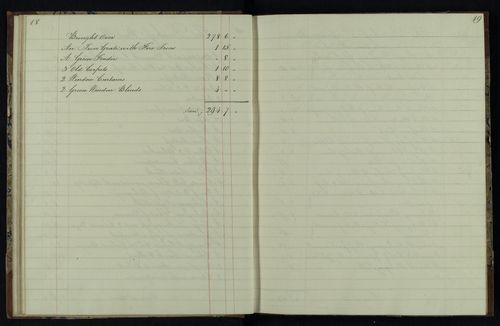 18
Brought Over 278 6 -
An Iron Grate with Fire Irons 1 15 -
A Green Fender - 8 -
3 Old Carpets 1 10 -
2 Window Curtains 8 8 -
2 Green Window Blinds 4 - -
294 7 -
19